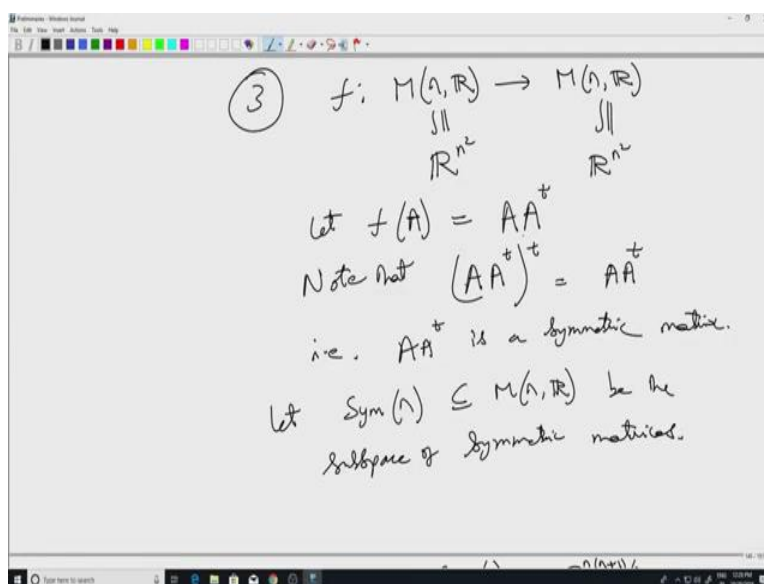 Preliminaries - Windows Journal
File Edit View Insert Actions Tools Help
3 f: M(n, ℝ) → M(n, ℝ)
≅ ≅
ℝ^{n²} ℝ^{n²}
Let f(A) = AA^t
Note that (AA^t)^t = AA^t
i.e. AA^t is a symmetric matrix.
Let Sym(n) ⊆ M(n, ℝ) be the
subspace of symmetric matrices.
Type here to search